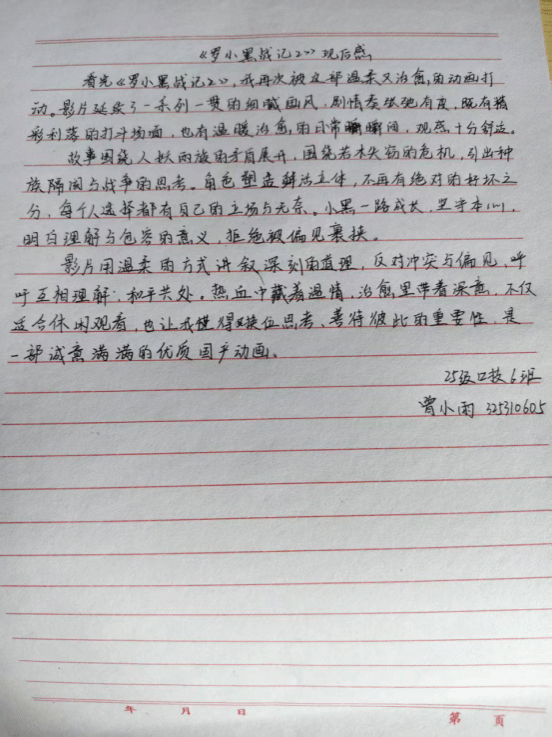 《罗小黑战记2》观后感
看完《罗小黑战记2》,我再次被这部温柔又治愈的动画打
动。影片延续了一系列一贯的细腻画风,剧情张弛有度,既有精
彩利落的打斗场面,也有温暖治愈的日常瞬间,观感十分舒适。
故事围绕人妖两族的矛盾展开,围绕若木失窃的危机,引出种
族隔阂与战争的思考。角色塑造鲜活立体,不再有绝对的好坏之
分,每个人选择都有自己的立场与无奈。小黑一路成长,坚守本心,
明白理解与包容的意义,拒绝被偏见裹挟。
影片用温柔的方式讲叙深刻的道理,反对冲突与偏见,呼
吁互相理解、和平共处。热血中藏着温情,治愈里带着深意,不仅
适合休闲观看,也让我懂得换位思考、善待彼此的重要性,是
一部诚意满满的优质国产动画。
25级口技6班
曾小雨 325310605
年 月 日
第 页